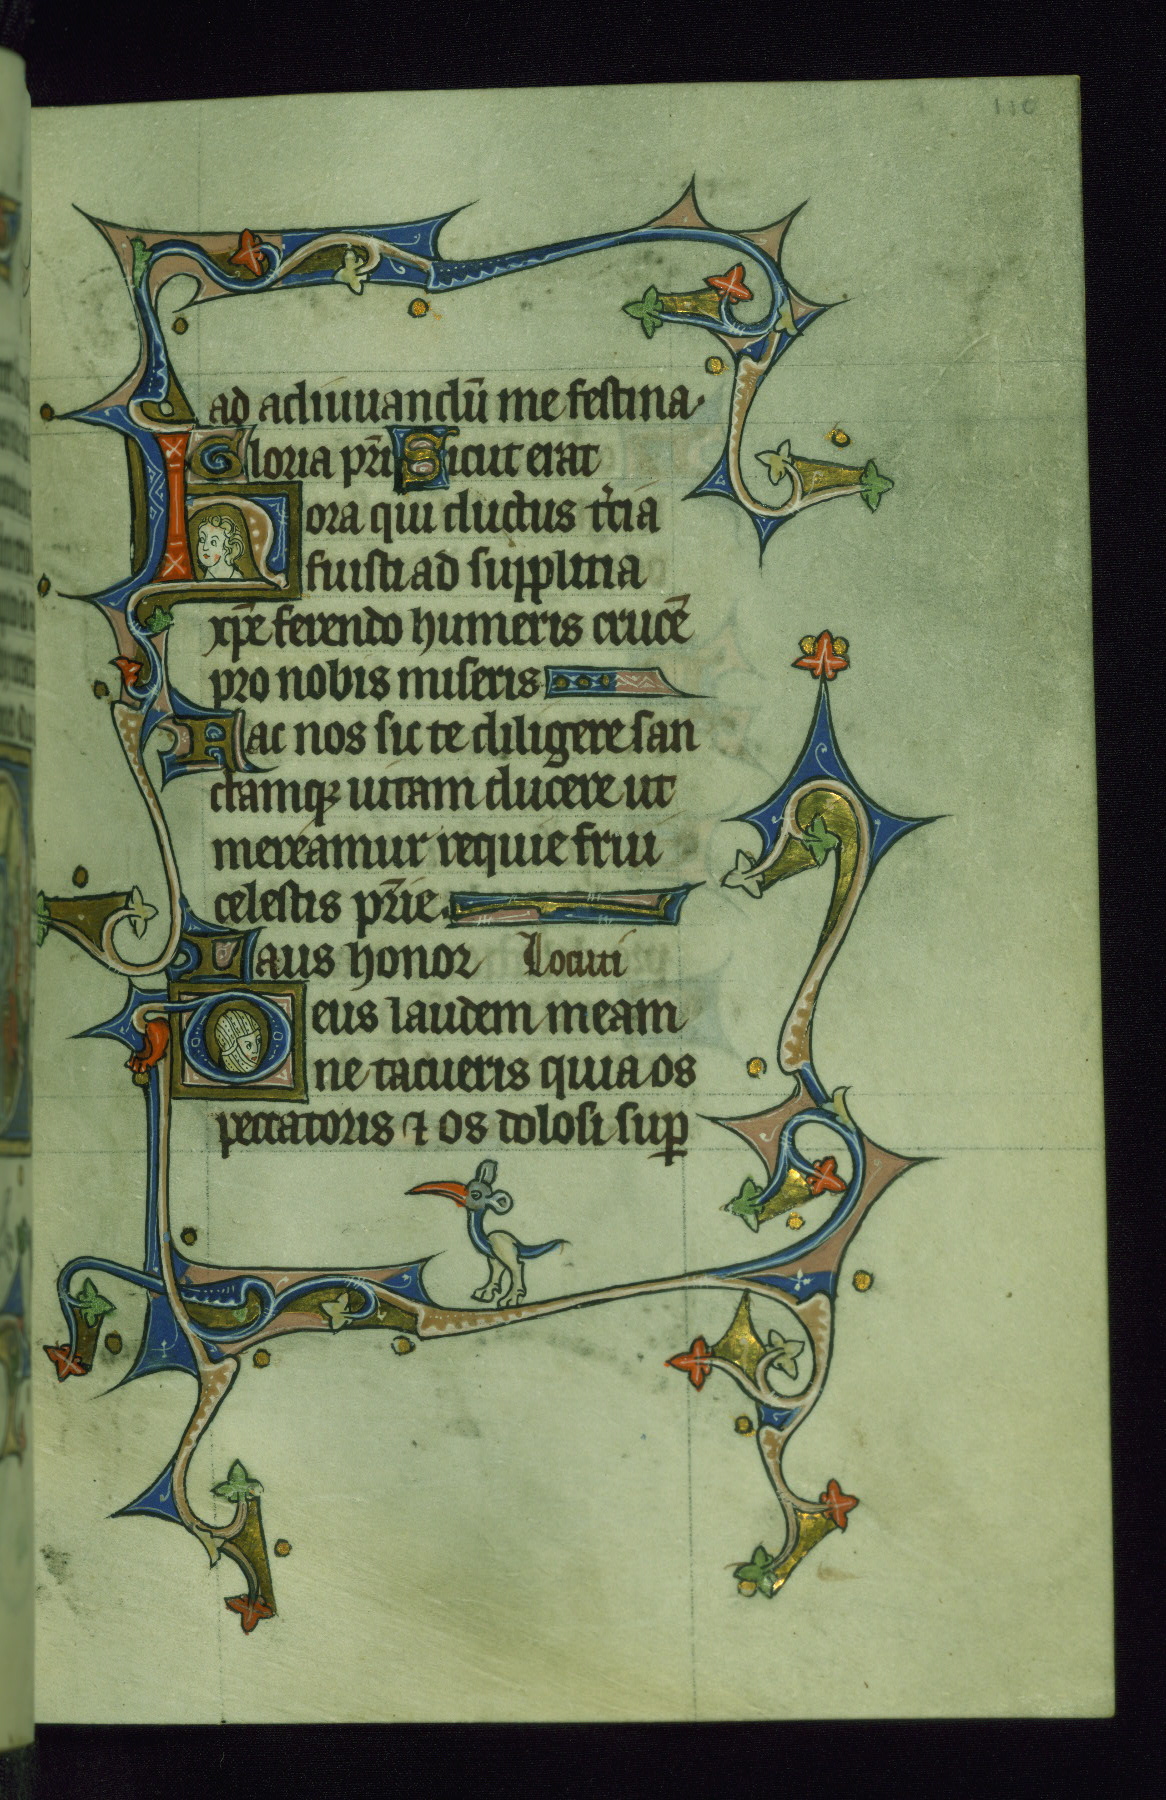 110
ad adiuuandū me festina.
Gloria pr̄i Sicut erat
Hora qui ductus t̓cia
fuisti ad supplitia
xp̄e ferendo humeris crucē
pro nobis miseris
Hac nos sic te diligere san
ctamqꝫ uitam ducere ut
mereamur requie frui
celestis pr̄ie.
Laus honor Locuti
Deus laudem meam
ne tacueris quia os
peccatoris ⁊ os dolosi suꝑ